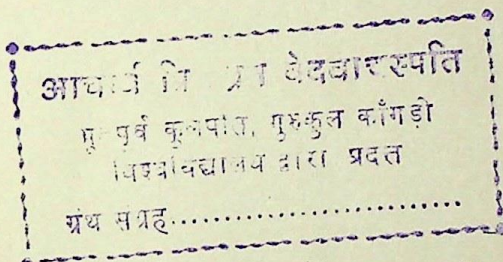 आचार्य प्रि व्रत वेदवाचस्पति
पूर्व कुलपति, गुरुकुल काँगड़ी
विश्वविद्यालय द्वारा प्रदत
ग्रंथ संग्रह..........................